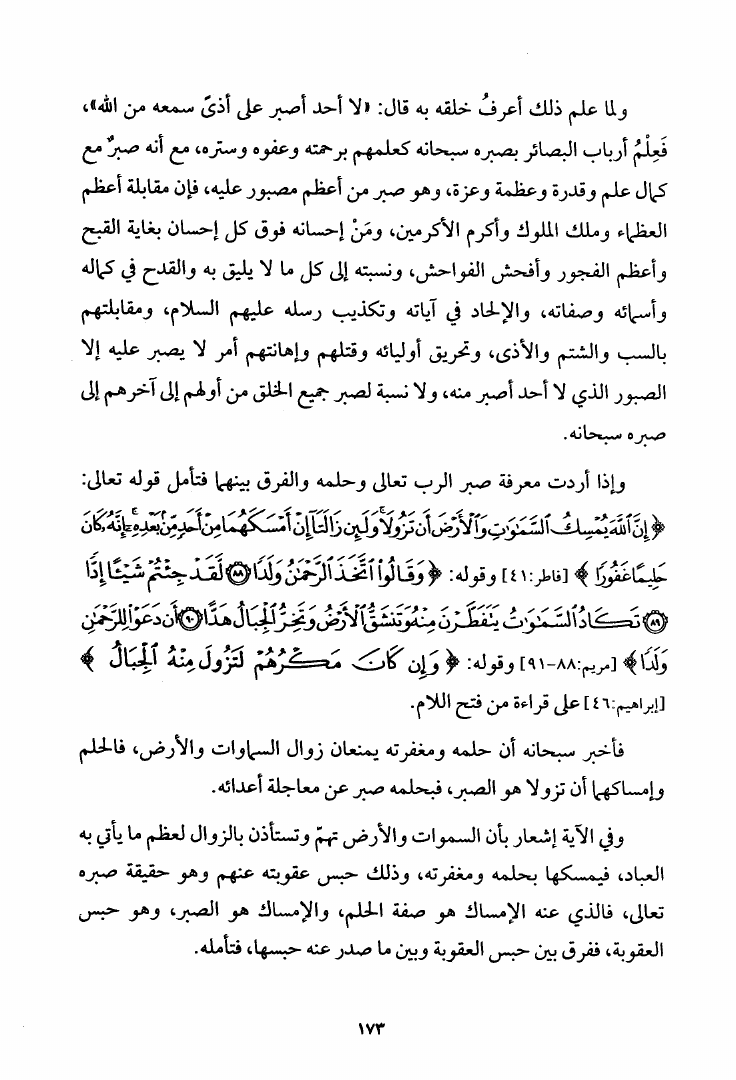 ولما علم ذلك أعرفُ خلقه به قال: «لا أحد أصبر على أذىً سمعه من الله»،
فَعِلْمُ أرباب البصائر بصبره سبحانه كعلمهم برحمته وعفوه وستره، مع أنه صبرٌ مع
كمال علم وقدرة وعظمة وعزة، وهو صبر من أعظم مصبور عليه، فإن مقابلة أعظم
العظماء وملك الملوك وأكرم الأكرمين، ومَنْ إحسانه فوق كل إحسان بغاية القبح
وأعظم الفجور وأفحش الفواحش، ونسبته إلى كل ما لا يليق به والقدح في كماله
وأسمائه وصفاته، والإلحاد في آياته وتكذيب رسله عليهم السلام، ومقابلتهم
بالسب والشتم والأذى، وتحريق أوليائه وقتلهم وإهانتهم أمر لا يصبر عليه إلا
الصبور الذي لا أحد أصبر منه، ولا نسبة لصبر جميع الخلق من أولهم إلى آخرهم إلى
صبره سبحانه.
وإذا أردت معرفة صبر الرب تعالى وحلمه والفرق بينهما فتأمل قوله تعالى:
﴿إِنَّ ٱللَّهَ يُمْسِكُ ٱلسَّمَٰوَٰتِ وَٱلْأَرْضَ أَن تَزُولَا ۚ وَلَئِن زَالَتَآ إِنْ أَمْسَكَهُمَا مِنْ أَحَدٍ مِّنۢ بَعْدِهِۦٓ ۚ إِنَّهُۥ كَانَ
حَلِيمًا غَفُورًا﴾ [فاطر:٤١] وقوله: ﴿وَقَالُوا۟ ٱتَّخَذَ ٱلرَّحْمَٰنُ وَلَدًا ٨٨ لَّقَدْ جِئْتُمْ شَيْـًٔا إِدًّا
٨٩ تَكَادُ ٱلسَّمَٰوَٰتُ يَتَفَطَّرْنَ مِنْهُ وَتَنشَقُّ ٱلْأَرْضُ وَتَخِرُّ ٱلْجِبَالُ هَدًّا ٩٠ أَن دَعَوْا۟ لِلرَّحْمَٰنِ
وَلَدًا﴾ [مريم:٨٨-٩١] وقوله: ﴿وَإِن كَانَ مَكْرُهُمْ لَتَزُولَ مِنْهُ ٱلْجِبَالُ﴾
[إبراهيم:٤٦] على قراءة من فتح اللام.
فأخبر سبحانه أن حلمه ومغفرته يمنعان زوال السماوات والأرض، فالحلم
وإمساكهما أن تزولا هو الصبر، فبحلمه صبر عن معاجلة أعدائه.
وفي الآية إشعار بأن السموات والأرض تهمّ وتستأذن بالزوال لعظم ما يأتي به
العباد، فيمسكها بحلمه ومغفرته، وذلك حبس عقوبته عنهم وهو حقيقة صبره
تعالى، فالذي عنه الإمساك هو صفة الحلم، والإمساك هو الصبر، وهو حبس
العقوبة، ففرق بين حبس العقوبة وبين ما صدر عنه حبسها، فتأمله.
١٧٣